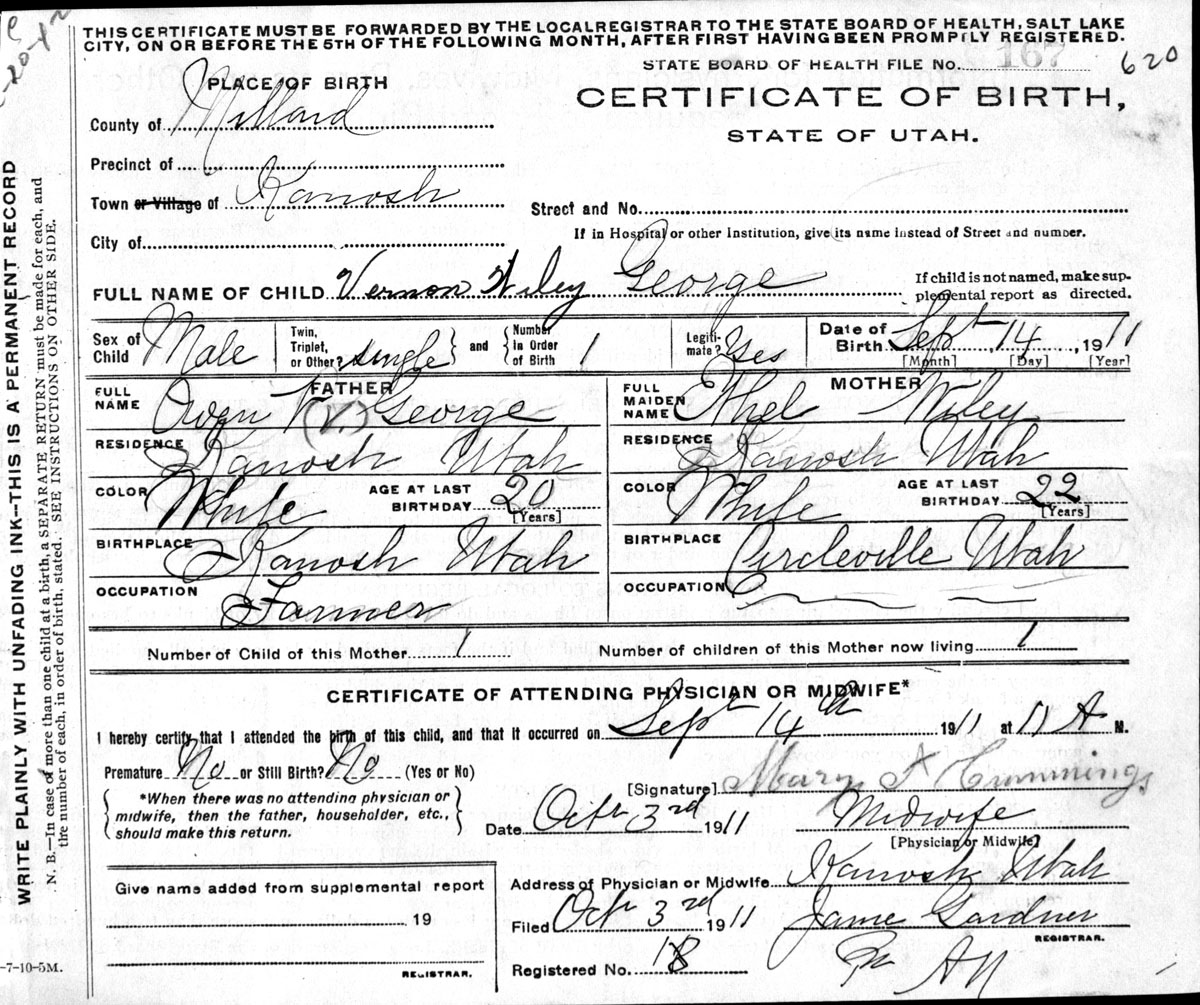 THIS CERTIFICATE MUST BE FORWARDED BY THE LOCAL REGISTRAR TO THE STATE BOARD OF HEALTH, SALT LAKE
CITY, ON OR BEFORE THE 5TH OF THE FOLLOWING MONTH, AFTER FIRST HAVING BEEN PROMPTLY REGISTERED.
STATE BOARD OF HEALTH FILE No. 167 620
PLACE OF BIRTH
CERTIFICATE OF BIRTH,
County of Millard
STATE OF UTAH.
Precinct of
Town or Village of Kanosh
Street and No.
City of
If in Hospital or other Institution, give its name instead of Street and number.
FULL NAME OF CHILD Vernon Wiley George
If child is not named, make sup-
plemental report as directed.
Sex of Child Male
Twin, Triplet, or Other single and Number In Order of Birth 1
Legiti-mate? Yes
Date of Birth Sept 14, 1911
[Month] [Day] [Year]
FATHER
FULL NAME Owen W (V.) George
MOTHER
FULL MAIDEN NAME Ethel Wiley
RESIDENCE Kanosh Utah
RESIDENCE Kanosh Utah
COLOR White AGE AT LAST BIRTHDAY 20 [Years]
COLOR White AGE AT LAST BIRTHDAY 22 [Years]
BIRTHPLACE Kanosh Utah
BIRTHPLACE Circleville Utah
OCCUPATION Farmer
OCCUPATION
Number of Child of this Mother 1 Number of children of this Mother now living 1
CERTIFICATE OF ATTENDING PHYSICIAN OR MIDWIFE*
I hereby certify that I attended the birth of this child, and that it occurred on Sept 14th 1911 at 11 A M.
Premature No or Still Birth? No (Yes or No)
*When there was no attending physician or
midwife, then the father, householder, etc.,
should make this return.
[Signature] Mary A Cummings
Date Oct 3rd 1911 Midwife
[Physician or Midwife]
Give name added from supplemental report
19
REGISTRAR.
Address of Physician or Midwife Kanosh Utah
Filed Oct 3rd 1911 Jame Gardner
REGISTRAR.
Registered No. 18
-7-10-5M.
WRITE PLAINLY WITH UNFADING INK—THIS IS A PERMANENT RECORD
N. B.—In case of more than one child at a birth, a SEPARATE RETURN must be made for each, and
the number of each, in order of birth, stated. SEE INSTRUCTIONS ON OTHER SIDE.